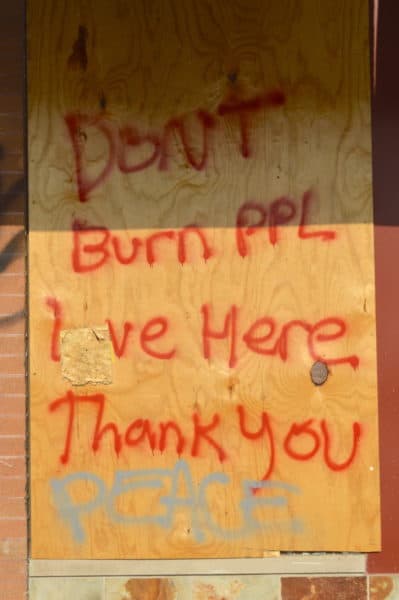 DONT
Burn PPL
live Here
Thank you
PEACE